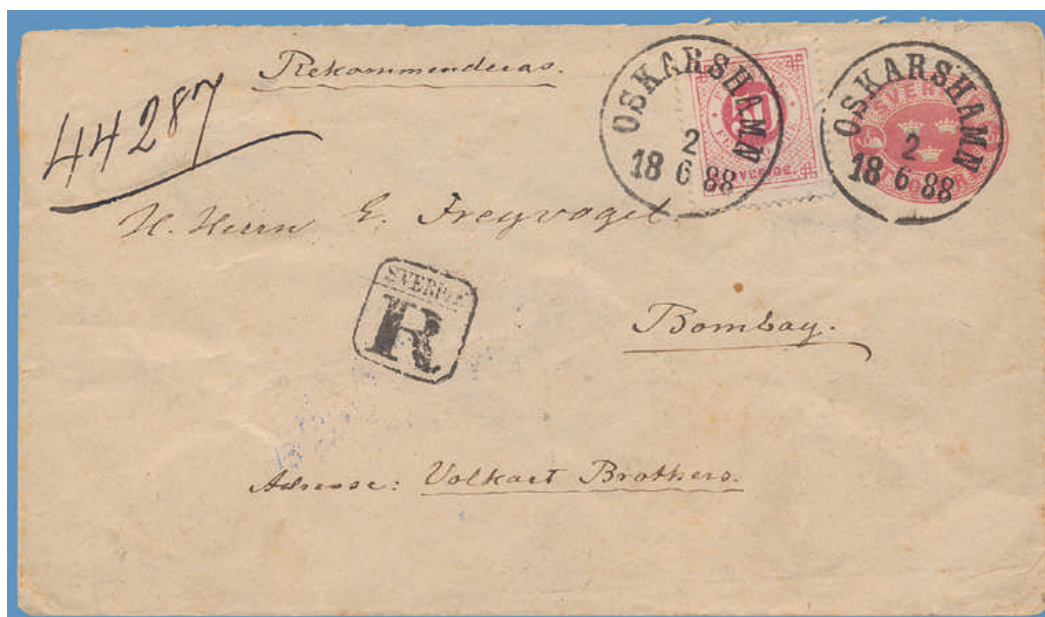 Rekommenderas.
44287
OSKARSHAMN
2
18 6 88
OSKARSHAMN
2
18 6 88
SVERIGE
H. Herrn E. Freyvogel
SVERIGE
R
Bombay.
Adresse: Volkart Brothers.